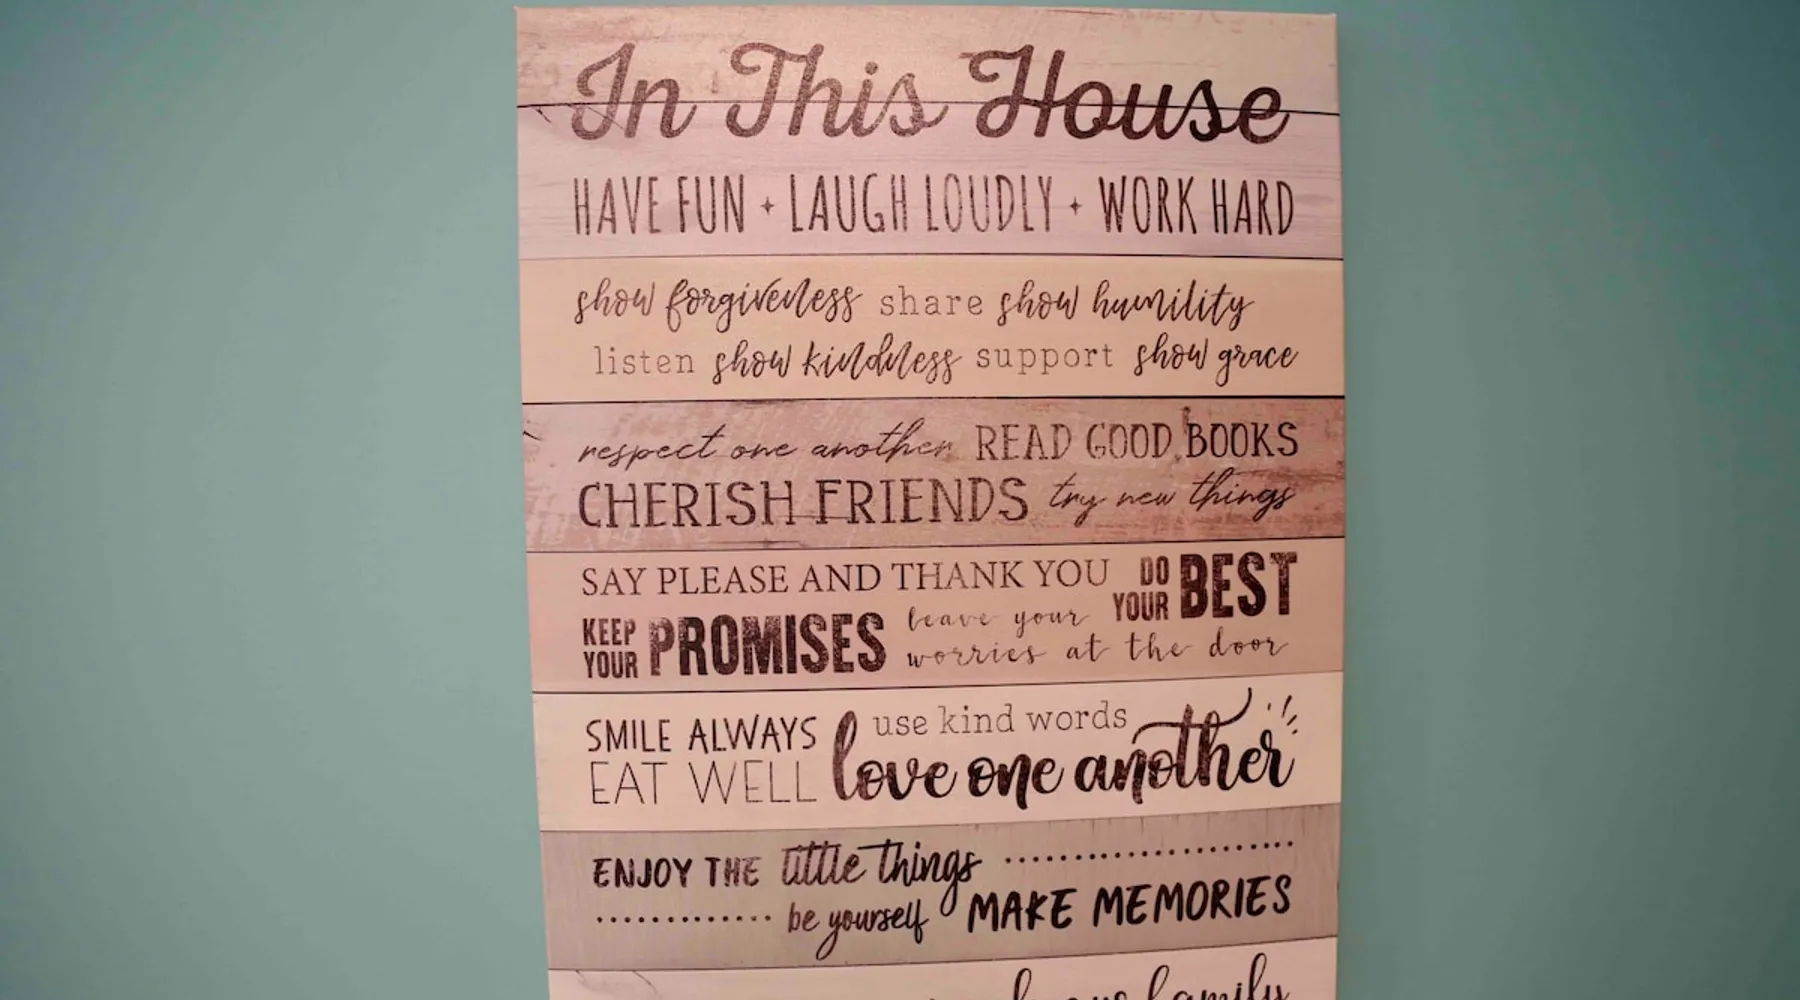 In This House
HAVE FUN + LAUGH LOUDLY + WORK HARD
show forgiveness share show humility
listen show kindness support show grace
respect one another READ GOOD BOOKS
CHERISH FRIENDS try new things
SAY PLEASE AND THANK YOU DO YOUR BEST
KEEP YOUR PROMISES leave your worries at the door
SMILE ALWAYS use kind words
EAT WELL love one another
ENJOY THE little things
be yourself MAKE MEMORIES
family